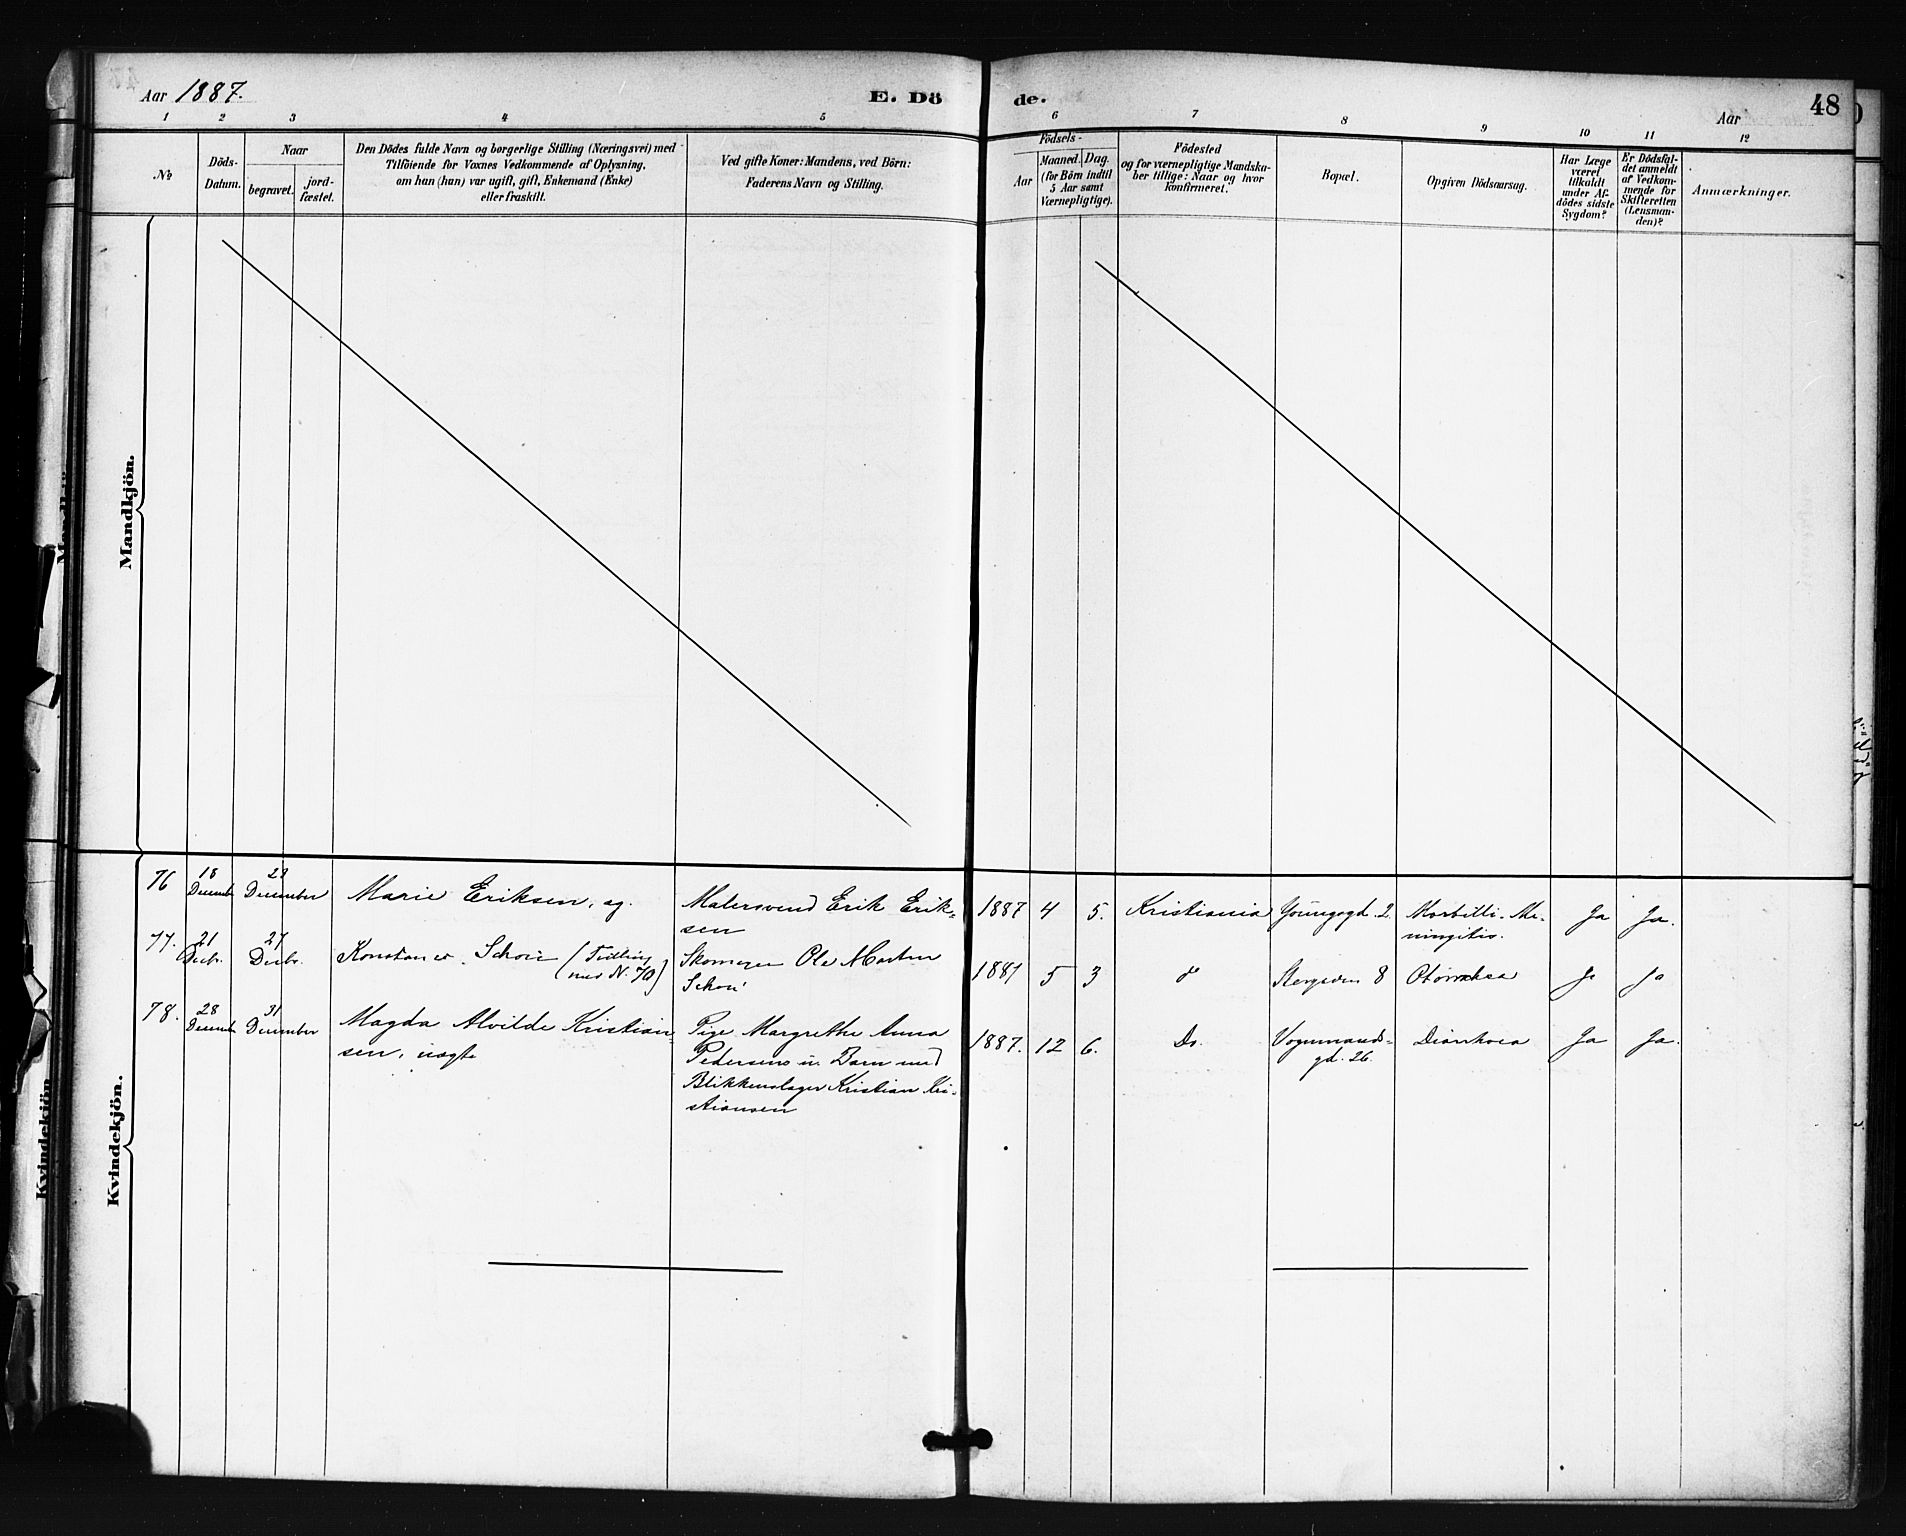 Aar 1887.
E. Dö
de.
Aar
48
1 2 3 4 5 6 7 8 9 10 11 12
№
Döds-
Datum.
Naar
begravet.
jord-
fæstet.
Den Dödes fulde Navn og borgerlige Stilling (Næringsvei) med
Tilföiende for Voxnes Vedkommende af Oplysning,
om han (hun) var ugift, gift, Enkemand (Enke)
eller fraskilt.
Ved gifte Koner: Mandens, ved Börn:
Faderens Navn og Stilling.
Födsels-
Aar
Maaned. Dag.
(for Börn indtil
5 Aar samt
Værnepligtige).
Födested
og for værnepligtige Mandska-
ber tillige: Naar og hvor
konfirmeret.
Bopæl.
Opgiven Dödsaarsag.
Har Læge
været
tilkaldt
under Af-
dödes sidste
Sygdom?
Er Dödsfal-
det anmeldt
af Vedkom-
mende for
Skifteretten
(Lensman-
den)?
Anmærkninger.
Mandkjön.
Kvindekjön.
76 18 December 23 December Marie Eriksen, æg. Malersvend Erik Erik-
sen
1887 4 5. Kristiania Youngsgd. 2. Morbilli. Me-
ningitis.
Ja Ja.
77. 21 Decbr. 27 Decbr. Schou (Tvilling
med N. 70)
Skomager Ole Morten
Schou
5 3 do 8 Ja Ja
78. 28 December 31 December Magda Alvilde Kristian-
sen, uægte
Pige Margrethe Anna
Pedersens u. Barn med
Blikkenslager Kristian Kri-
stiansen
1887. 12 6. Do. Vognmands-
gd. 26.
Diarrhoea Ja Ja.